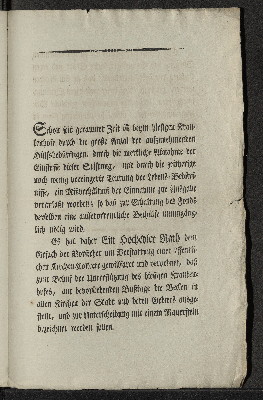 Schon seit geraumer Zeit ist beym hiesigen Kran-
kenhofe durch die große Anzal der aufzunehmenden
Hülfsbedürftigen, durch die merkliche Abnahme der
Einkünfte dieser Stiftung, und durch die zeitherige
noch wenig verringerte Teurung der Lebens-Bedürf-
nisse, ein Misverhältniß der Einnahme zur Ausgabe
veranlaßt worden; so daß zur Erhaltung des Fonds
desselben eine außerordentliche Beihülfe unumgäng-
lich nötig wird.
Es hat daher Ein Hochedler Rath dem
Gesuch der Vorsteher um Verstattung einer öffentli-
chen Kirchen-Collecte gewillfaret und verordnet, daß
zum Behuf der Unterstützung des hiesigen Kranken-
hofes, am bevorstehenden Bußtage die Becken in
allen Kirchen der Stadt und deren Gebiets ausge-
stellt, und zur Unterscheidung mit einem Mauerstein
bezeichnet werden sollen.